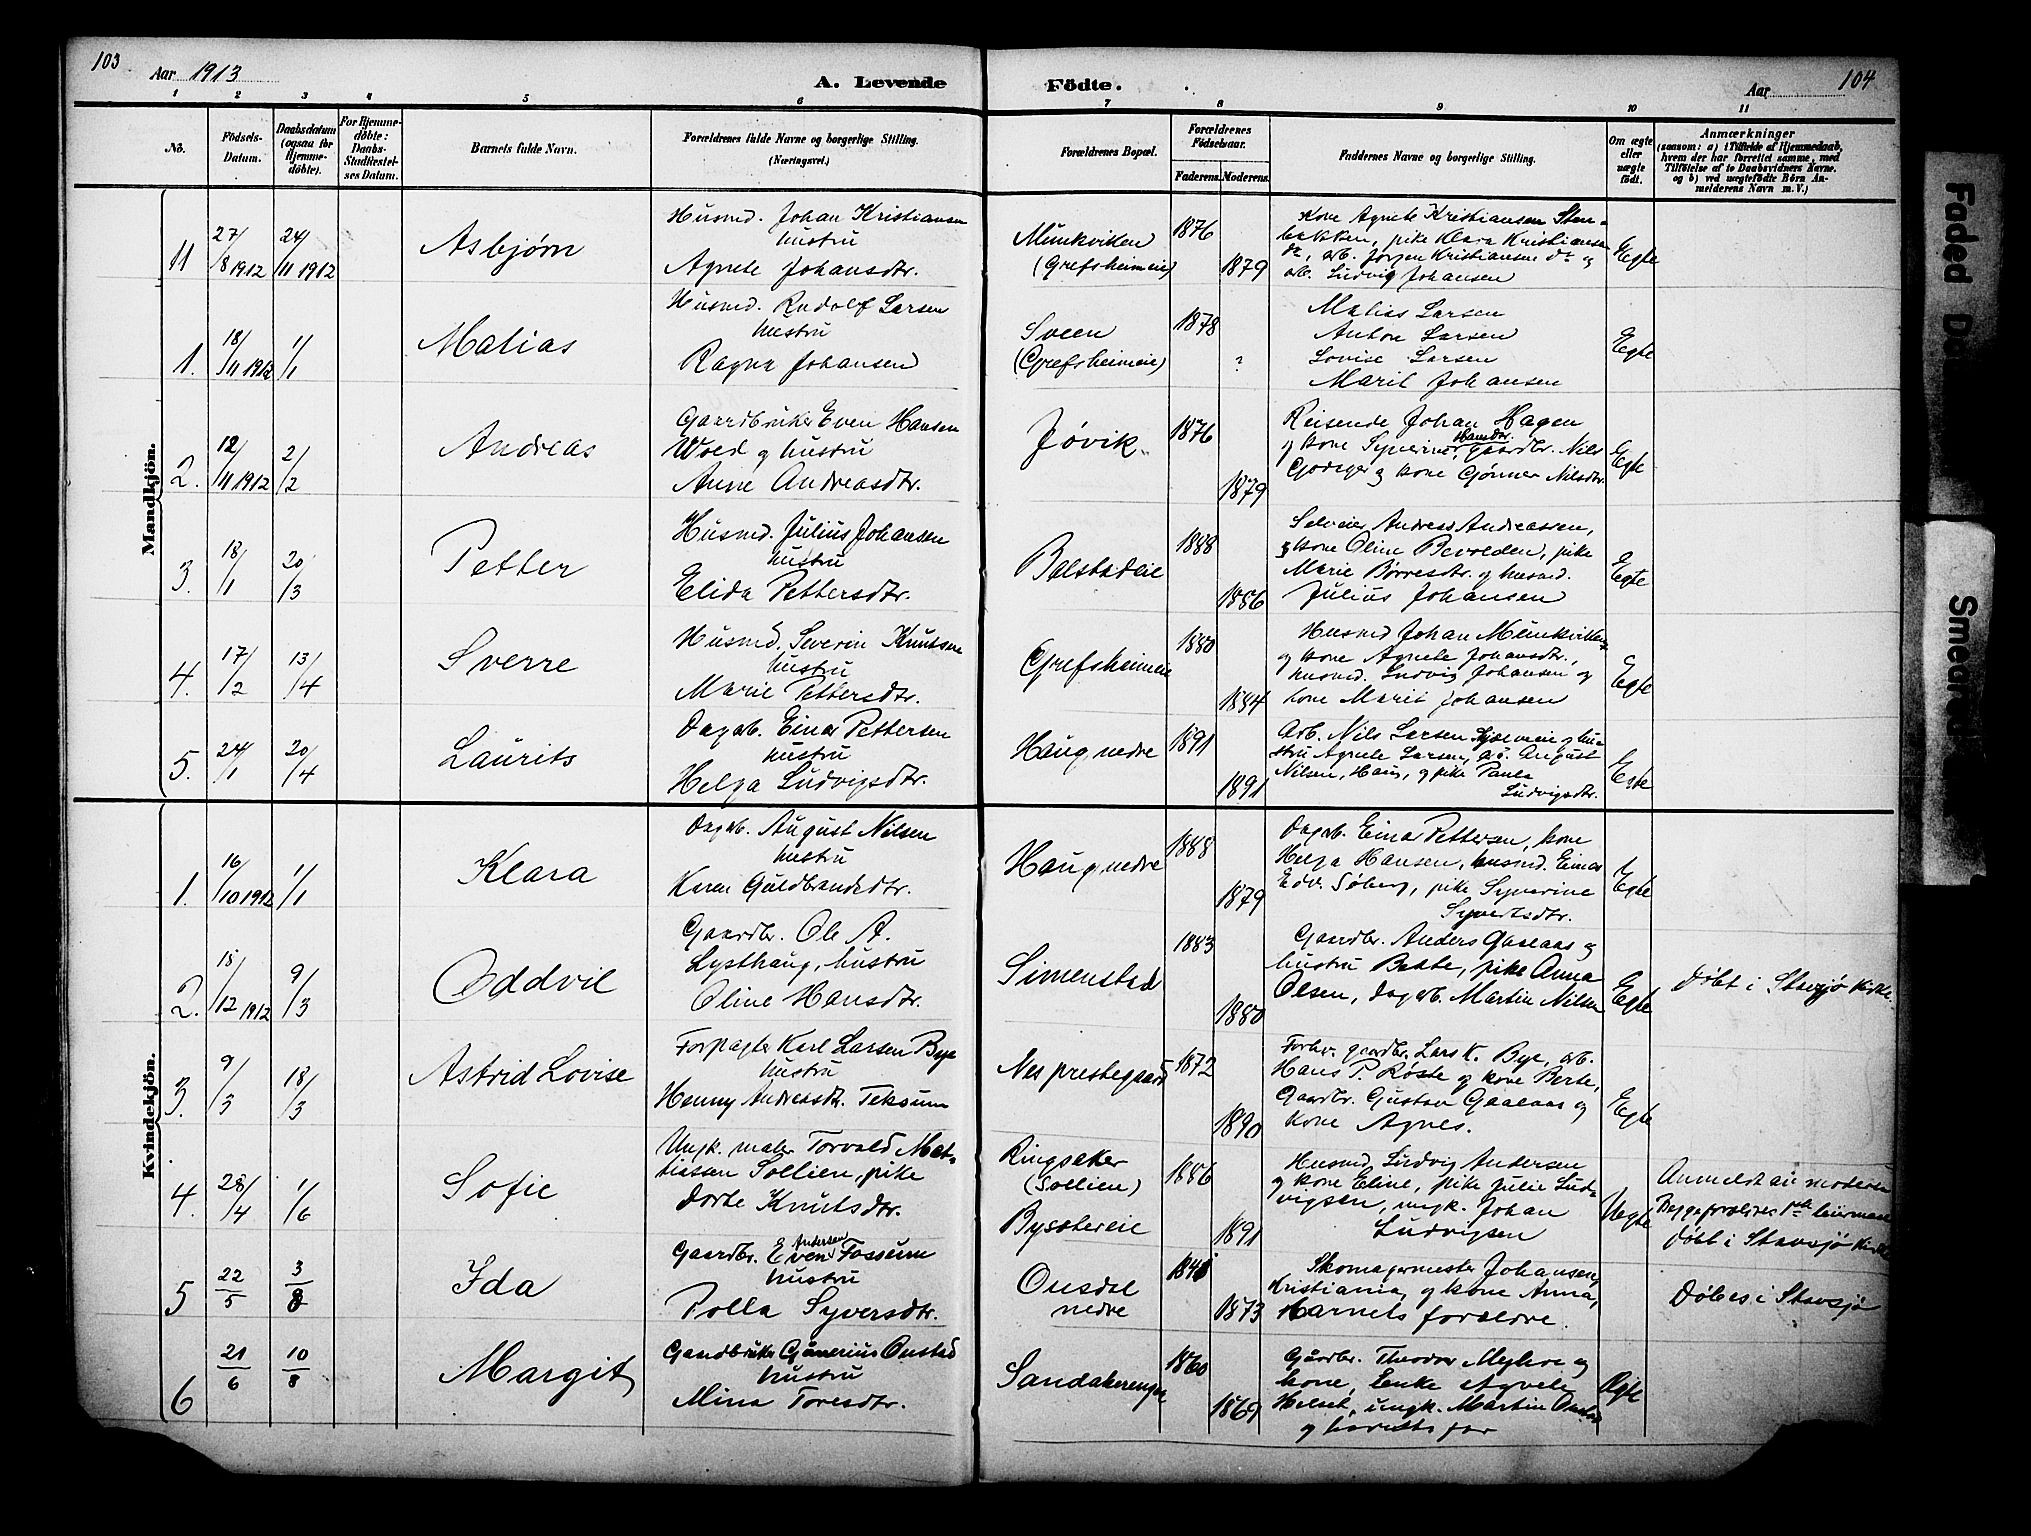 103
Aar 1913
A. Levende
Födte.
Aar
104
1 2 3 4 5 6 7 8 9 10 11
No.
Födsels-
Datum.
Daabsdatum
(ogsaa for
Hjemme-
döbte).
For Hjemme-
döbte:
Daabs-
Stadfæstel-
ses Datum.
Barnets fulde Navn.
Forældrenes fulde Navne og borgerlige Stilling.
(Næringsvei.)
Forældrenes Bopæl.
Forældrenes
Födselsaar.
Faderens.
Moderens.
Faddernes Navne og borgerlige Stilling.
Om ægte
eller
uægte
födt.
Anmærkninger
(saasom: a) i Tilfælde af Hjemmedaab,
hvem der har forrettet samme, med
Tilföielse af to Daabsvidners Navne.
og b) ved uægtefödte Börn An-
melderens Navn m. V.)
Mandkjön.
11
27/8 1912
24/11 1912
Asbjørn
Husmd. Johan Kristiansen
hustru
Agnete Johansdtr.
Munkviken
(Grefsheimeie)
1876
1879
Kone Agnete Kristiansen Sten-
bakken, pike Klara Kristiansen
do, arb. Jørgen Kristiansen do og
arb. Ludvig Johansen
Egte
1.
18/11 1912
1/1
Matias
Husmd. Rudolf Larsen
hustru
Ragna Johansen
Sveen
(Grefsheimeie)
1878
?
Matias Larsen
Anton Larsen
Lovise Larsen
Marit Johansen
Egte
2.
12/11 1912
2/2
Andreas
Gaardbruker Even Hansen
Wold og hustru
Anne Andreasdtr.
Jøvik
1876
1879
Reisende Johan Hagen
og kone Syverine Hansdtr. gaardbr. Nils
og kone Gjønner Nilsdtr.
Egte
3.
18/1
20/3
Petter
Husmd. Julius Johansen
hustru
Elida Pettersdtr.
Balstadeie
1888
1886
Selveier Andreas Andreassen,
og kone Oline Bevolden, pike
Marie Børresdtr. og husmd.
Julius Johansen
Egte
4.
17/2
13/4
Sverre
Husmd. Severin Knutsen
hustru
Marie Pettersdtr.
Grefsheimeie
1880
1884
Husmd Johan Munkviken
og kone Agnete Johansdtr.,
husmd. Ludvig Johansen og
kone Marit Johansen
Egte
5.
24/1
20/4
Laurits
Dagarb. Einar Pettersen
hustru
Helga Ludvigsdtr.
Haug, nedre
1891
1891
Arb. Nils Larsen og hu-
stru Agnete Larsen, August
Nilsen, Haug, og pike Paula
Ludvigsdtr.
Egte
Kvindekjön.
1.
16/10 1912
1/1
Klara
Dagarb. August Nilsen
hustru
Karen Guldbrandsdtr.
Haug, nedre
1888
1879
Dagarb. Einar Pettersen, kone
Helga Hansen, husmd. Einar
Edv. Søberg, pike Syverine
Syvertsdtr.
Egte
2.
18/12 1912
9/3
Oddvil
Gaardbr. Ole A.
Lysthaug, hustru
Oline Hansdtr.
Simenstad
1883
1880
Gaardbr. Anders Gaalaas og
hustru Bette, pike Anna
Olsen, dagarb. Martin Nilsen
Egte
Døbt i Stavsjø kirke.
3.
9/3
18/3
Astrid Lovise
Forpagter Karl Larsen Bye
hustru
Henny Andreasdtr. Teksum
Nes prestegaard
1872
1890
Forhv. gaardbr. Lars K. Bye, arb.
Hans P. Røste og kone Berte,
Gaardbr. Gustav Gaalaas og
kone Agnes.
Egte
4.
28/4
1/6
Sofie
Ungk. maler Torvald Mat-
tiassen Sollien, pike
Dorte Knutsdtr.
Ringsaker
(Sollien)
Byssetereie
1886
1891
Husmd Ludvig Andersen
og kone Eline, pike Julie Lud-
vigsen, ungk. Johan
Ludvigsen
Uegte
Anmeldt av moderen
Begge forældres 1ste leiermaal
Døbt i Stavsjø kirke
5
22/5
3/8
Ida
Gaardbr. Even Andersen Fossum
hustru
Polla Syversdtr.
Onsdal
nedre
1873
Skomagermester Johansen,
Kristiania, og kone Anna,
Barnets forældre.
Døbt i Stavsjø
6
21/6
10/8
Margit
Gaardbruker Gunerius Onstad
hustru
Mina Toresdtr.
Sandakerengen
1860
1869
Gaardbr. Theodor Myhre og
kone, Enke Agnete
ungk. Martin Onstad
og barnets far
Egte
Smeared